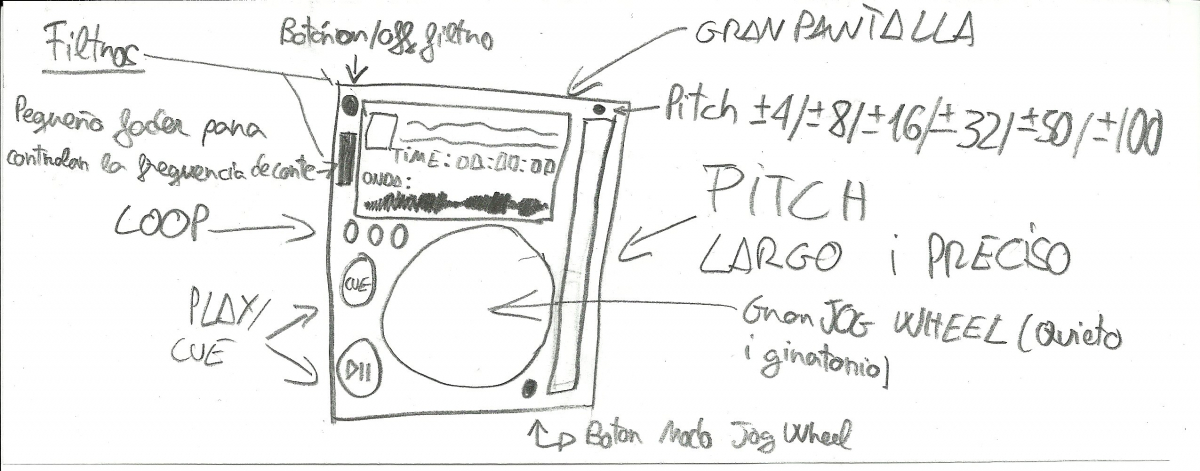 Filtros
Botón on/off filtro
GRAN PANTALLA
Pitch ±4/±8/±16/±32/±50/±100
Pequeño fader para
controlar la frequencia de corte
TIME: 00:00:00
ONDA:
LOOP
PITCH
LARGO i PRECISO
CUE
PLAY/
CUE
Gran JOG WHEEL (Quieto
i giratorio)
Boton Modo Jog Wheel